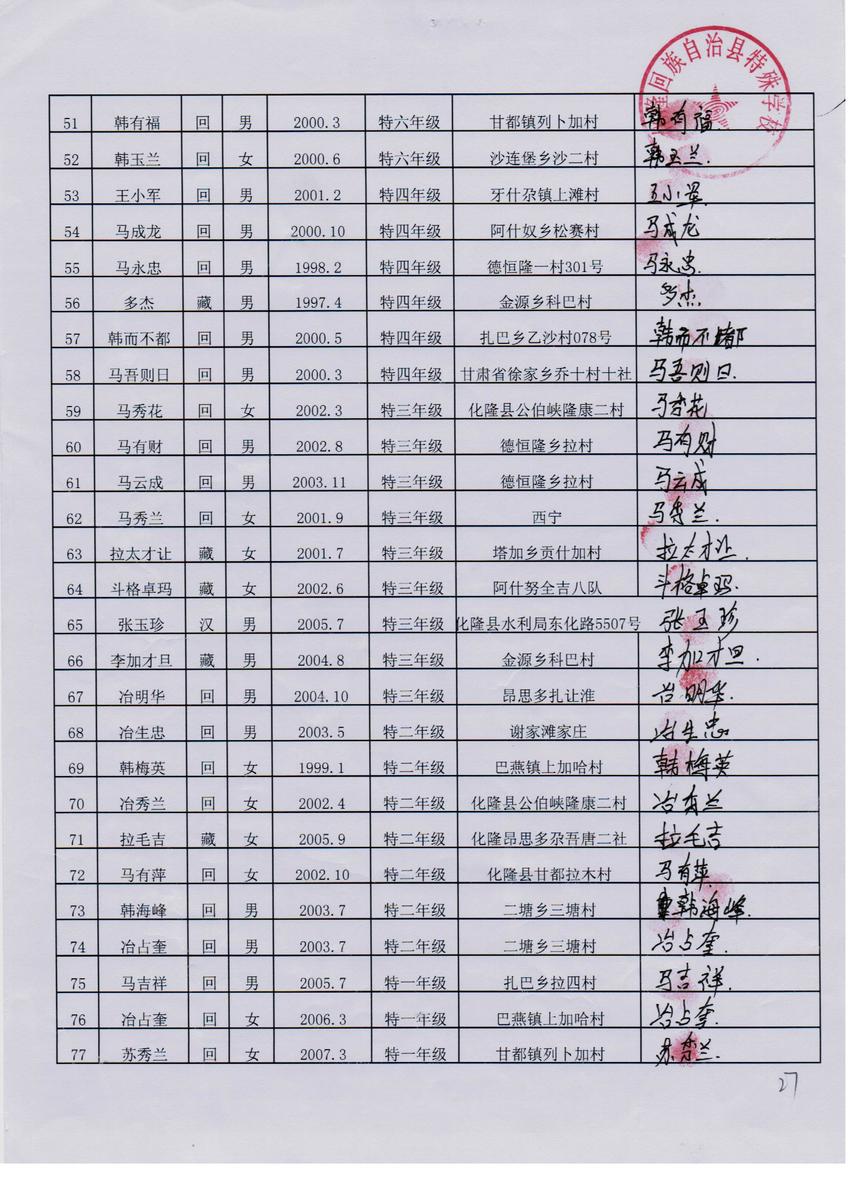 回族自治县特殊学校
51 韩有福 回 男 2000.3 特六年级 甘都镇列卜加村 韩有福.
52 韩玉兰 回 女 2000.6 特六年级 沙连堡乡沙二村 韩玉兰.
53 王小军 回 男 2001.2 特四年级 牙什尕镇上滩村 王小军.
54 马成龙 回 男 2000.10 特四年级 阿什奴乡松赛村 马成龙
55 马永忠 回 男 1998.2 特四年级 德恒隆一村301号 马永忠.
56 多杰 藏 男 1997.4 特四年级 金源乡科巴村 多杰
57 韩而不都 回 男 2000.5 特四年级 扎巴乡乙沙村078号 韩而不都
58 马吾则日 回 男 2000.3 特四年级 甘肃省徐家乡乔十村十社 马吾则日.
59 马秀花 回 女 2002.3 特三年级 化隆县公伯峡隆康二村 马秀花
60 马有财 回 男 2002.8 特三年级 德恒隆乡拉村 马有财
61 马云成 回 男 2003.11 特三年级 德恒隆乡拉村 马云成
62 马秀兰 回 女 2001.9 特三年级 西宁 马秀兰.
63 拉太才让 藏 女 2001.7 特三年级 塔加乡贡什加村 拉太才让.
64 斗格卓玛 藏 女 2002.6 特三年级 阿什努全吉八队 斗格卓玛.
65 张玉珍 汉 男 2005.7 特三年级 化隆县水利局东化路5507号 张玉珍
66 李加才旦 藏 男 2004.8 特三年级 金源乡科巴村 李加才旦.
67 冶明华 回 男 2004.10 特三年级 昂思多扎让淮 冶明华.
68 冶生忠 回 男 2003.5 特二年级 谢家滩家庄 冶生忠
69 韩梅英 回 女 1999.1 特二年级 巴燕镇上加哈村 韩梅英
70 冶秀兰 回 女 2002.4 特二年级 化隆县公伯峡隆康二村 冶秀兰
71 拉毛吉 藏 女 2005.9 特二年级 化隆昂思多尕吾唐二社 拉毛吉
72 马有萍 回 女 2002.10 特二年级 化隆县甘都拉木村 马有萍.
73 韩海峰 回 男 2003.7 特二年级 二塘乡三塘村 韩海峰.
74 冶占奎 回 男 2003.7 特二年级 二塘乡三塘村 冶占奎.
75 马吉祥 回 男 2005.7 特一年级 扎巴乡拉四村 马吉祥.
76 冶占奎 回 女 2006.3 特一年级 巴燕镇上加哈村 冶占奎.
77 苏秀兰 回 女 2007.3 特一年级 甘都镇列卜加村 苏秀兰.
27